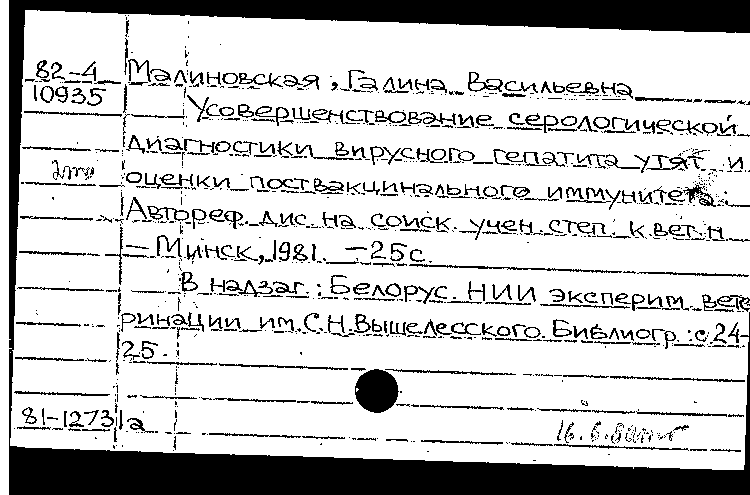 82-4 Малиновская, Галина Васильевна
10935 Усовершенствование серологической
диагностики вирусного гепатита утят и
оценки поствакцинального иммунитета:
Автореф. дис. на соиск. учен. степ. к.вет.н.
– Минск, 1981. – 25 с.
В надзаг.: Белорус. НИИ эксперим. вете-
ринации им. С.Н. Вышелесского. Библиогр.: с 24-
25.
81-12731а